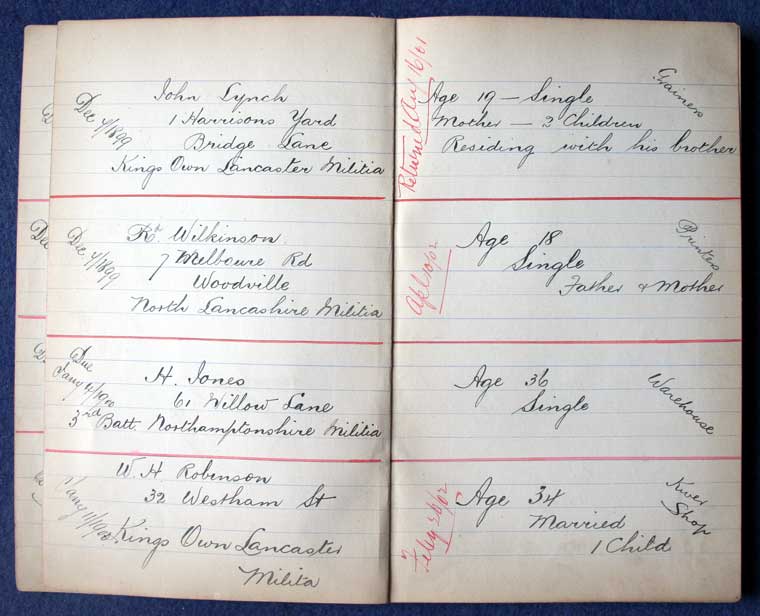 Dec 4/1899
John Lynch
1 Harrisons Yard
Bridge Lane
Kings Own Lancaster Militia
Returned Aug 16/01
Age 19 – Single
Mother – 2 Children
Residing with his brother
Grainers
Dec 4/1899
Rt. Wilkinson
7 Melboure Rd
Woodville
North Lancashire Militia
Apl 10/02
Age 18
Single
Father & Mother
Printers
Jany 4/1900
H. Jones
61 Willow Lane
3rd Batt. Northamptonshire Militia
Age 36
Single
Warehouse
Jany 4/1900
W. H. Robinson
32 Westham St
Kings Own Lancaster
Milita
Feby 26/02
Age 34
Married
1 Child
Shop